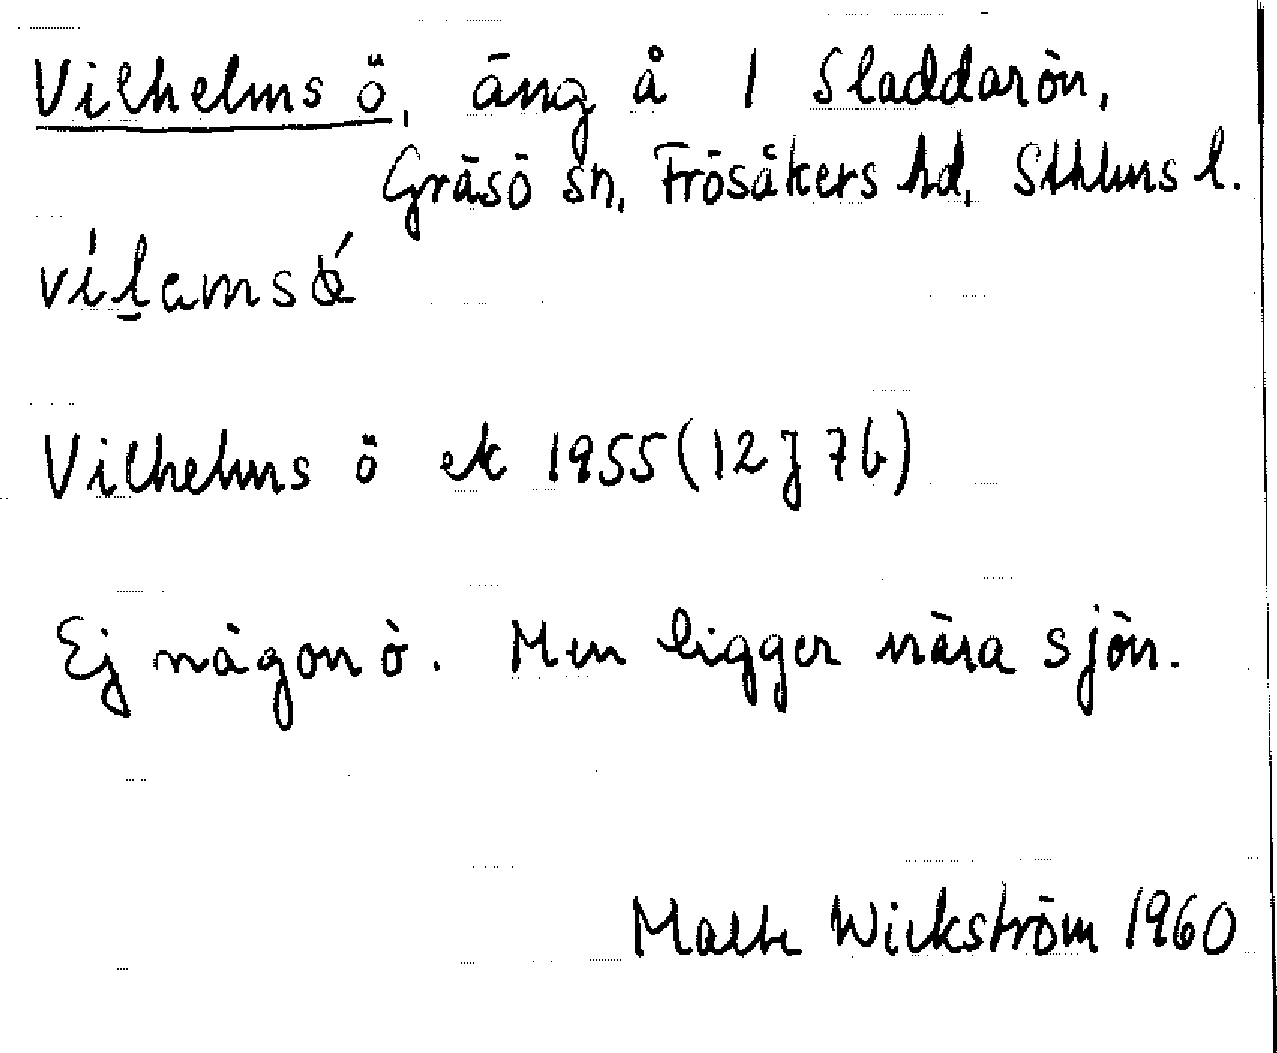 Vilhelms ö, äng å 1 Sladdarön,
Gräsö sn, Frösåkers hd, Sthlms l.
Vilhelms ö ek 1955 (12J 7b)
Ej någon ö. Men ligger nära sjön.
Malte Wickström 1960